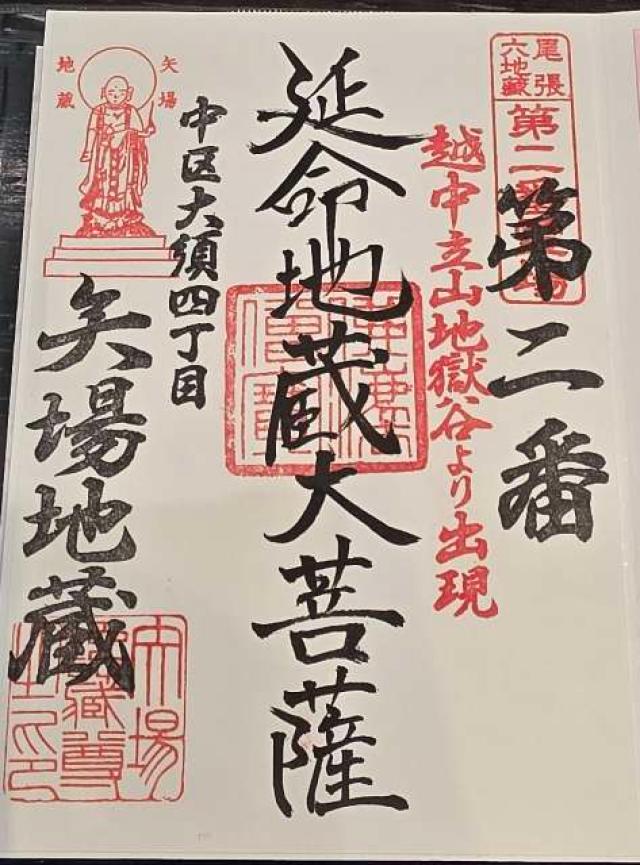 尾張
六地蔵
第二番
第二番
越中立山地獄谷より出現
延命地蔵大菩薩
中区大須四丁目
矢場地蔵
矢場
地蔵